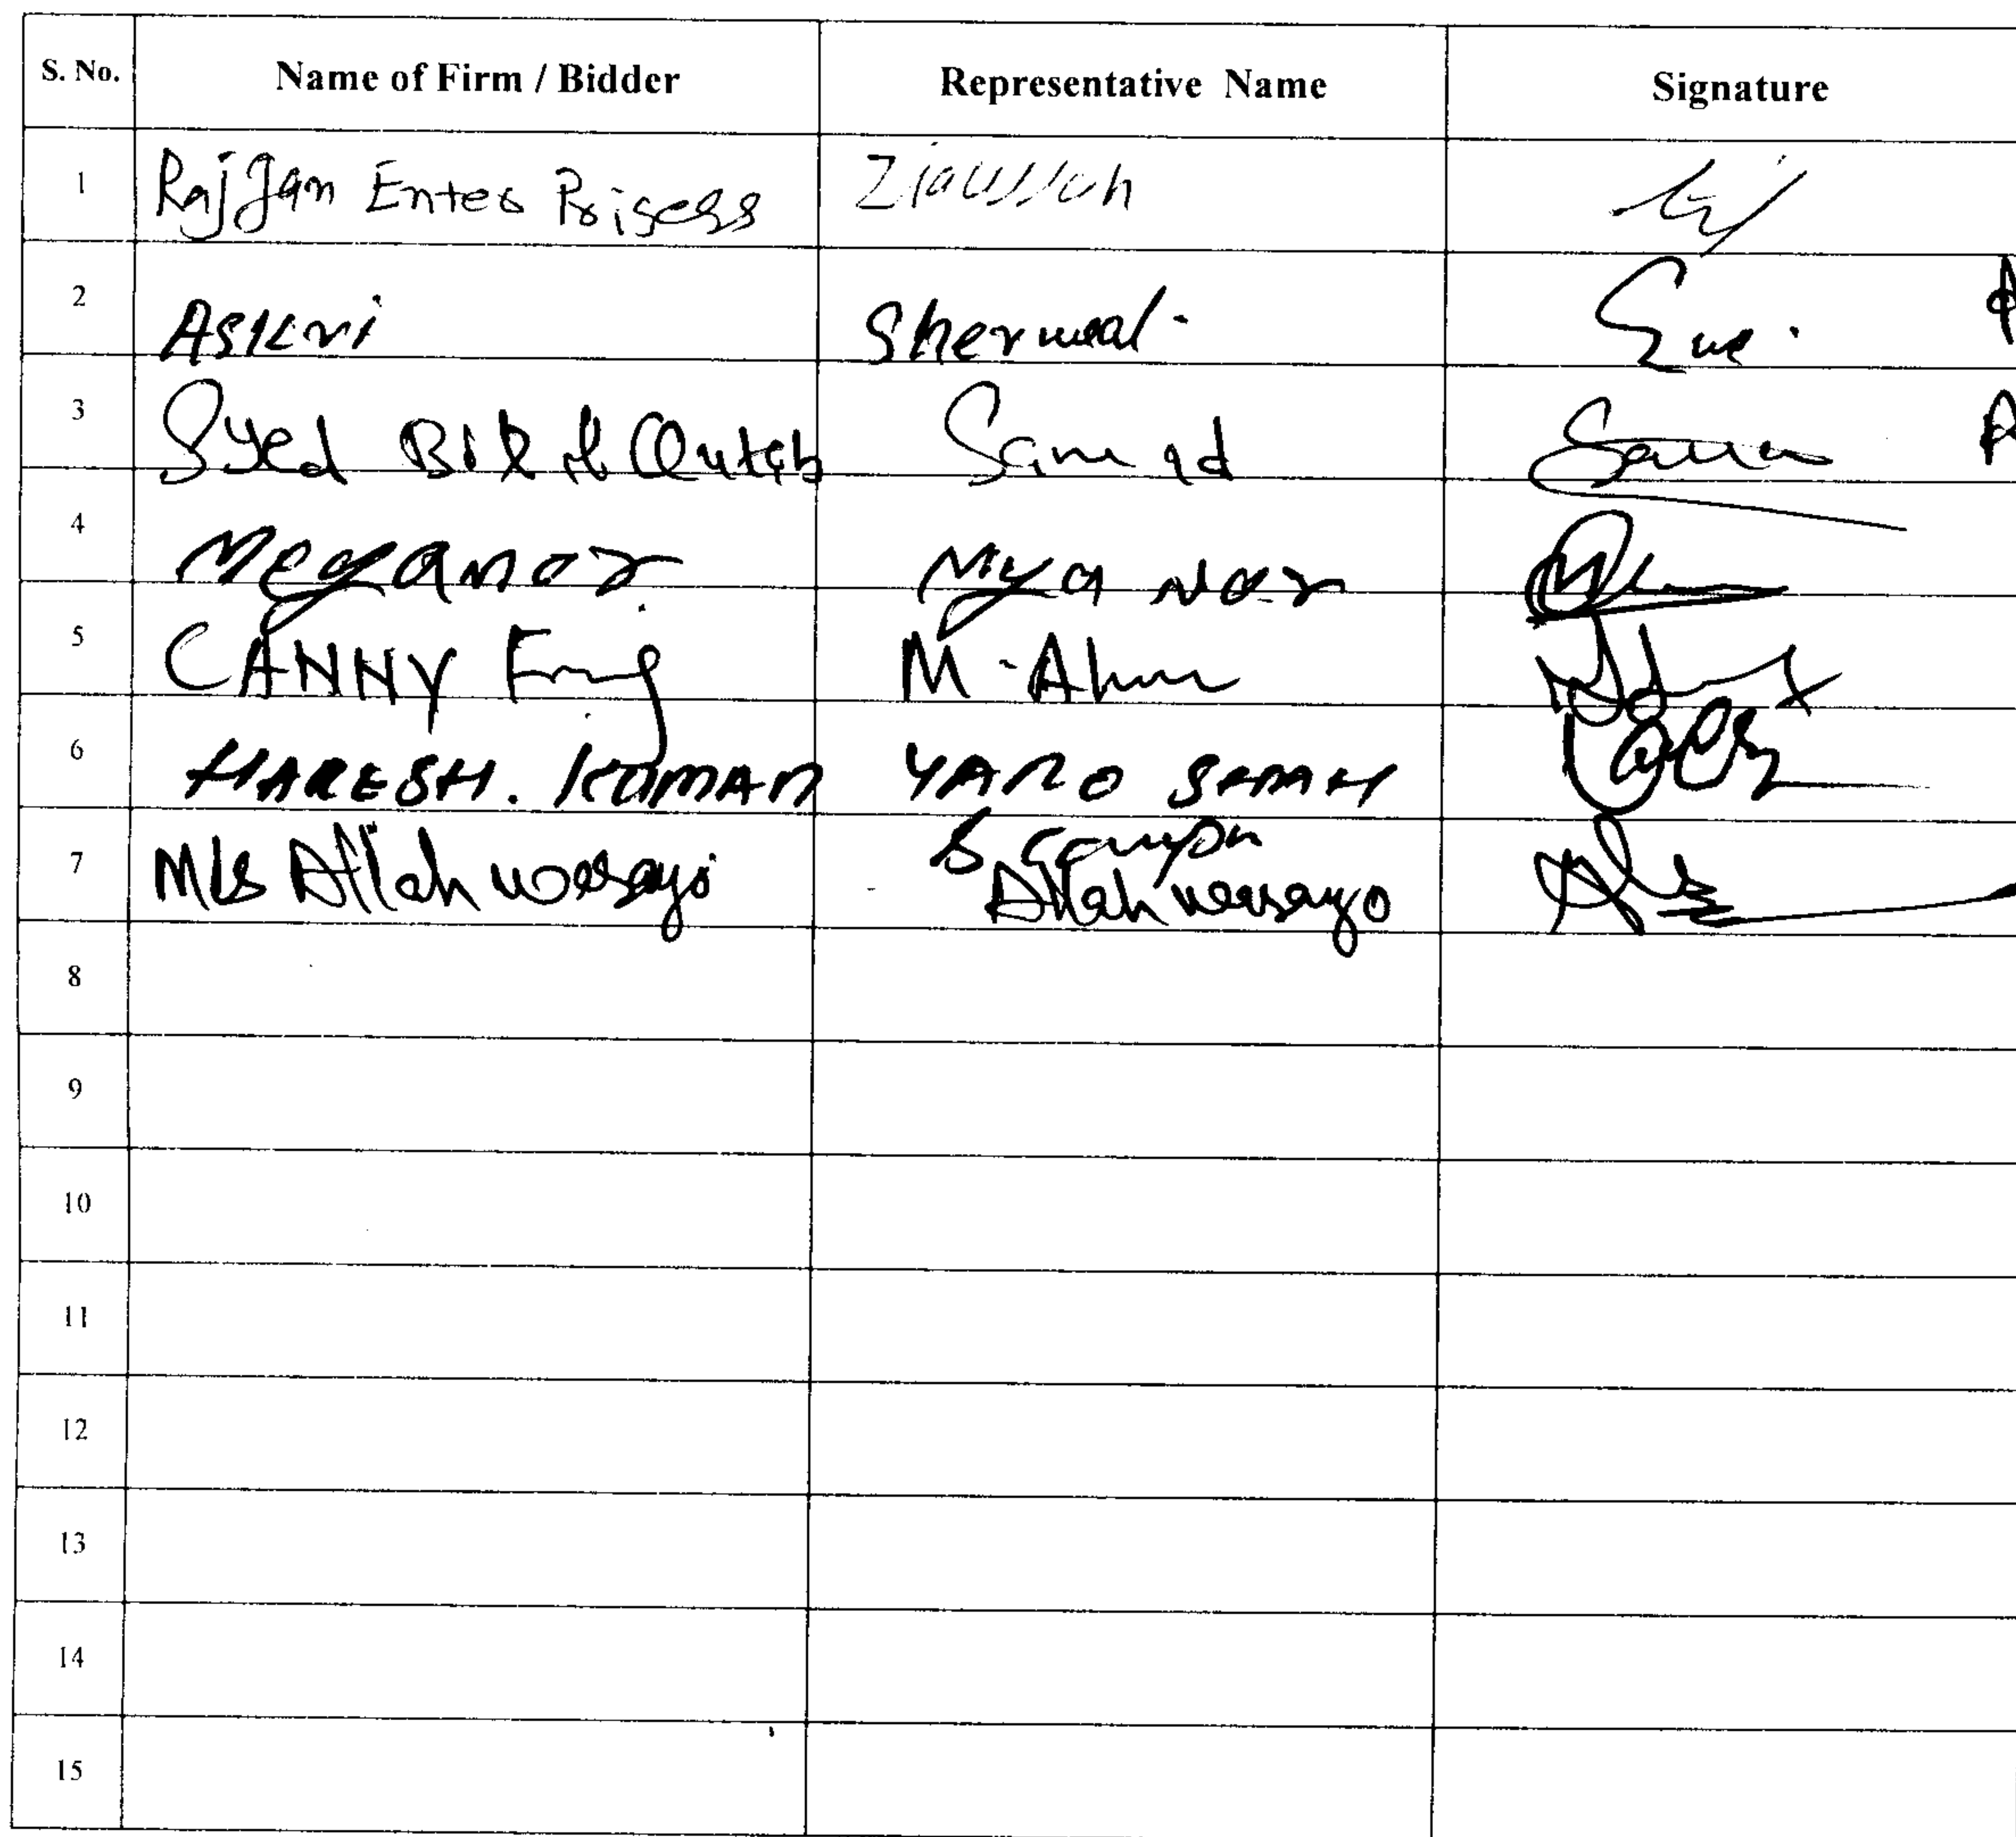 S. No. Name of Firm / Bidder Representative Name Signature
1 RajJan Enter Prisess Ziaullah
2 Askri Sherwal.
3 Syed Bil & Qutab Samad
4 Meganor Mya Nor
5 CANNY Eng M. Ahm
6 HARESH. KUMAR YARO SHAH
7 M/s Allah wasayo
Allah wasayo
8
9
10
11
12
13
14
15